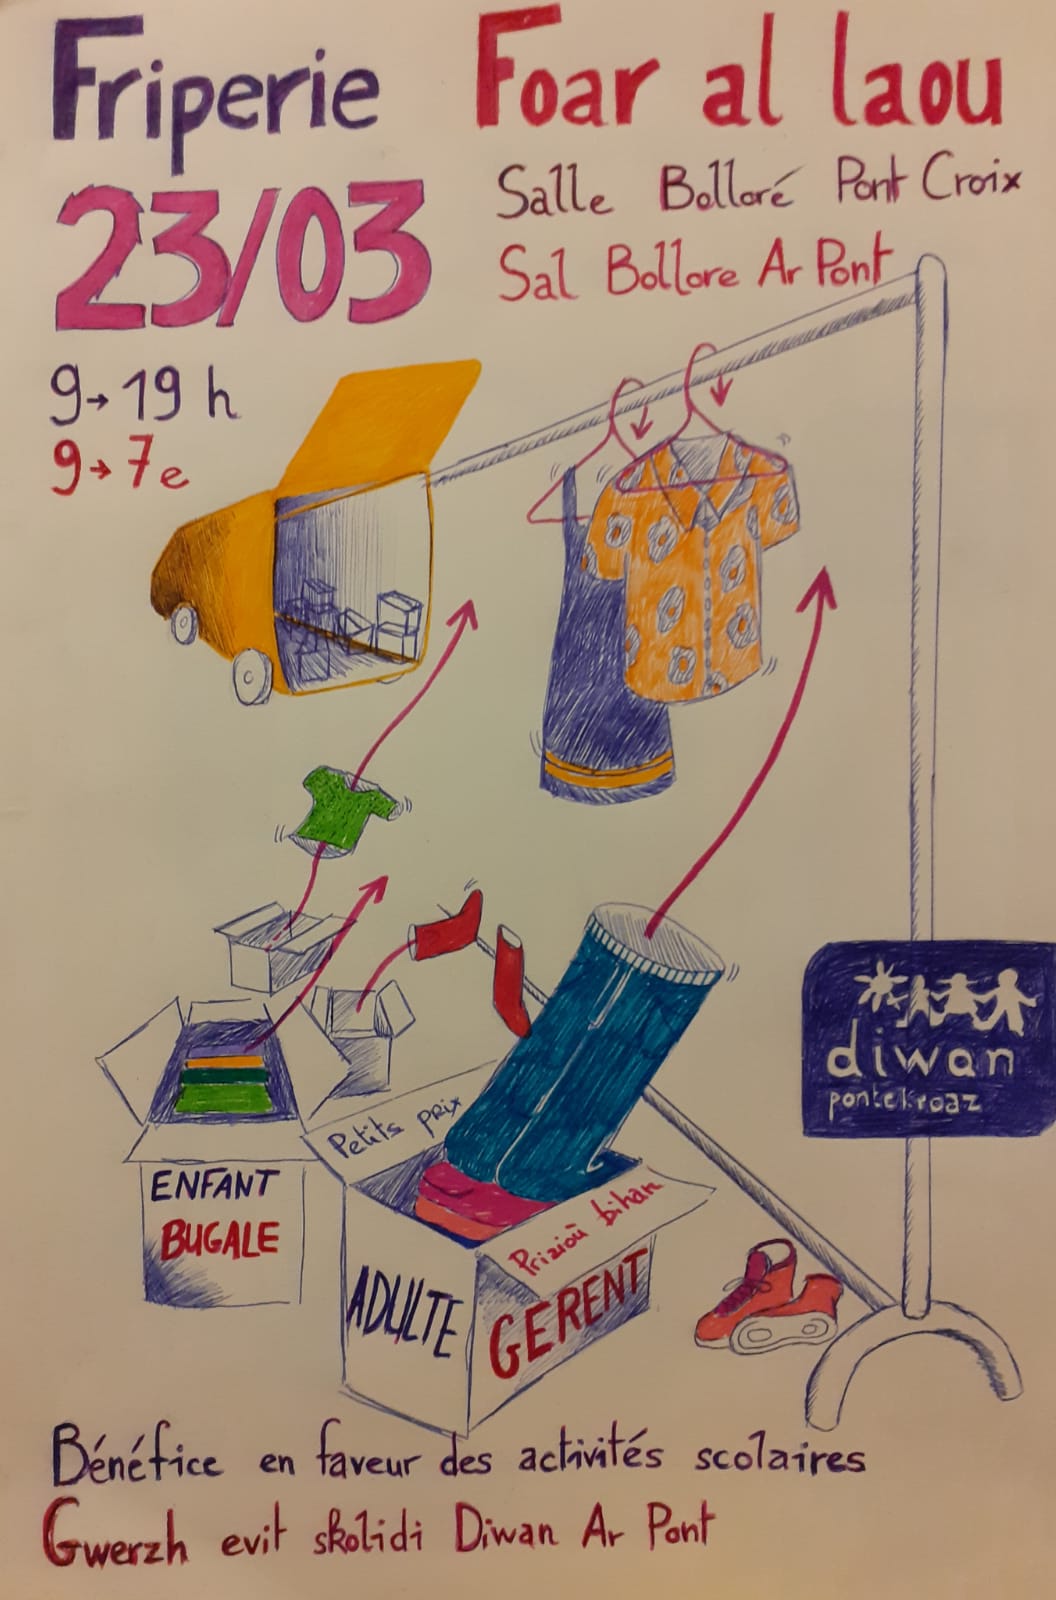 Friperie
Foar al laou
23/03
Salle Bolloré Pont Croix
Sal Bollore Ar Pont
9→19 h
9→7e
diwan
pontekroaz
Petits prix
Priziоù bihan
ENFANT
BUGALE
ADULTE
GERENT
Bénéfice en faveur des activités scolaires
Gwerzh evit skolidi Diwan Ar Pont